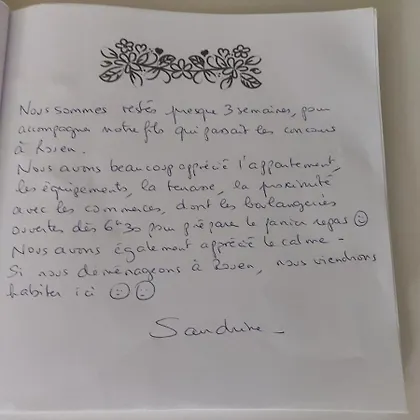 Nous sommes restés presque 3 semaines, pour
accompagner notre fils qui passait les concours
à Rouen.
Nous avons beaucoup apprécié l'appartement,
les équipements, la terrasse, la proximité
avec les commerces, dont les boulangeries
ouvertes dès 6h30 pour préparer le panier repas ☺
Nous avons également apprécié le calme -
Si nous déménageons à Rouen, nous viendrons
habiter ici ☺☺
Sandrine -